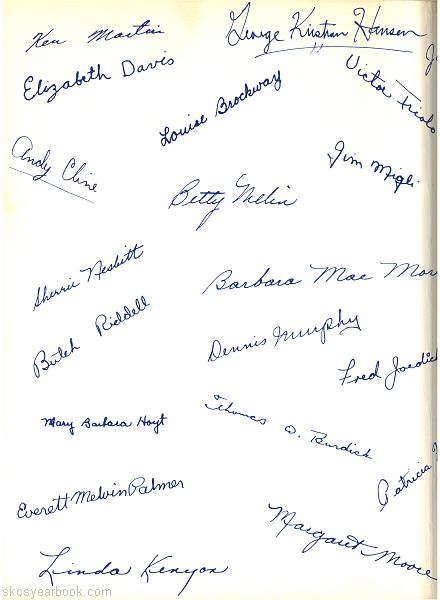 Ken Martin
George Kristian Hansen
Elizabeth Davis
Victor
Louise Brockway
Andy Cline
Jim Migli
Betty Melin
Sherrie Nesbitt
Barbara Mae Mor
Butch Riddell
Dennis Murphy
Fred
Mary Barbara Hoyt
Thomas O. Burdick
Everett Melvin Palmer
Patricia
Margaret Moore
Linda Kenyon
skcsyearbook.com